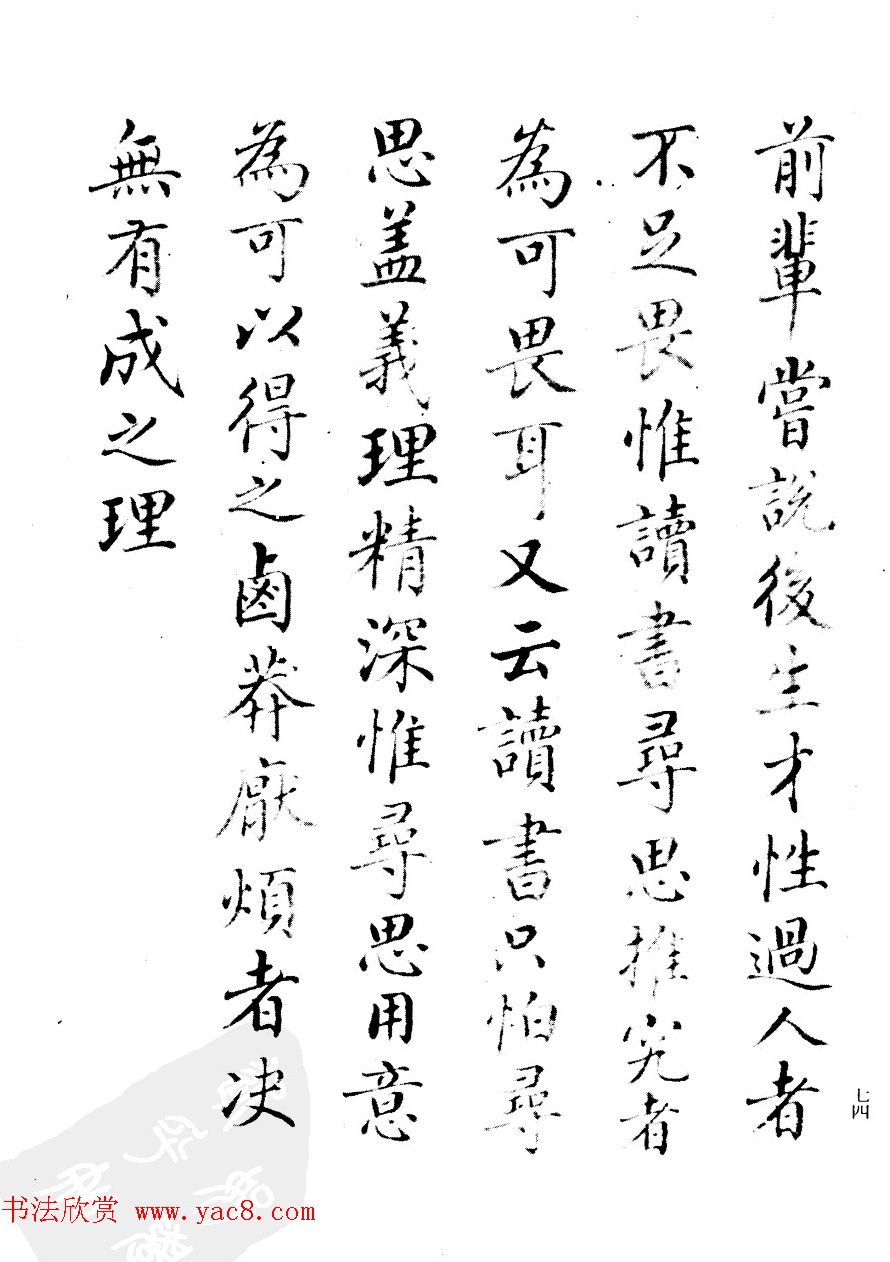 前輩嘗說後生才性過人者
不足畏惟讀書尋思推究者
為可畏耳又云讀書只怕尋
思盖義理精深惟尋思用意
為可以得之鹵莽厭煩者决
無有成之理
七四
书法欣赏 www.yac8.com